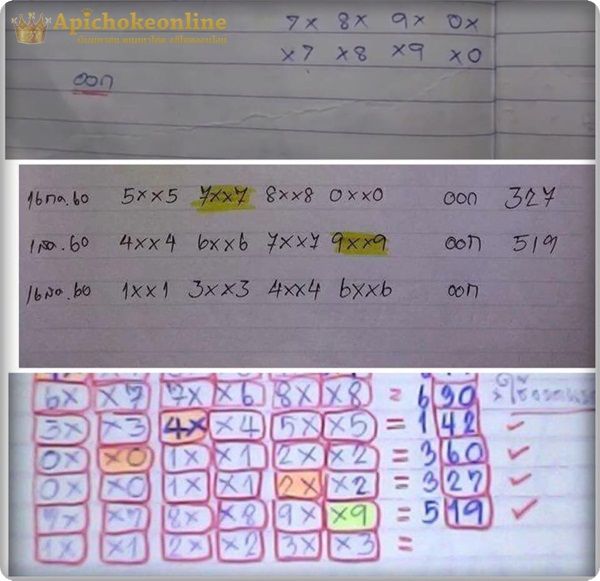 Apichokeonline
7x 8x 9x 0x
x7 x8 x9 x0
ออก
16กค.60 5xx5 7xx7 8xx8 0xx0 ออก 327
1สค.60 4xx4 6xx6 7xx7 9xx9 ออก 519
16สค.60 1xx1 3xx3 4xx4 6xx6 ออก
6x x7 7x x6 8x x8 = 690
3x x3 4x x4 5x x5 = 142 ✓
0x x0 1x x1 2x x2 = 360 ✓
0x x0 1x x1 2x x2 = 327 ✓
7x x7 8x x8 9x x9 = 519 ✓
1x x1 2x x2 3x x3 =